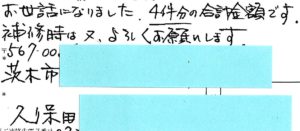 お世話になりました。4件分の合計金額です。
補修時は又、よろしくお願いします。
〒567-00
茨木市
久保田